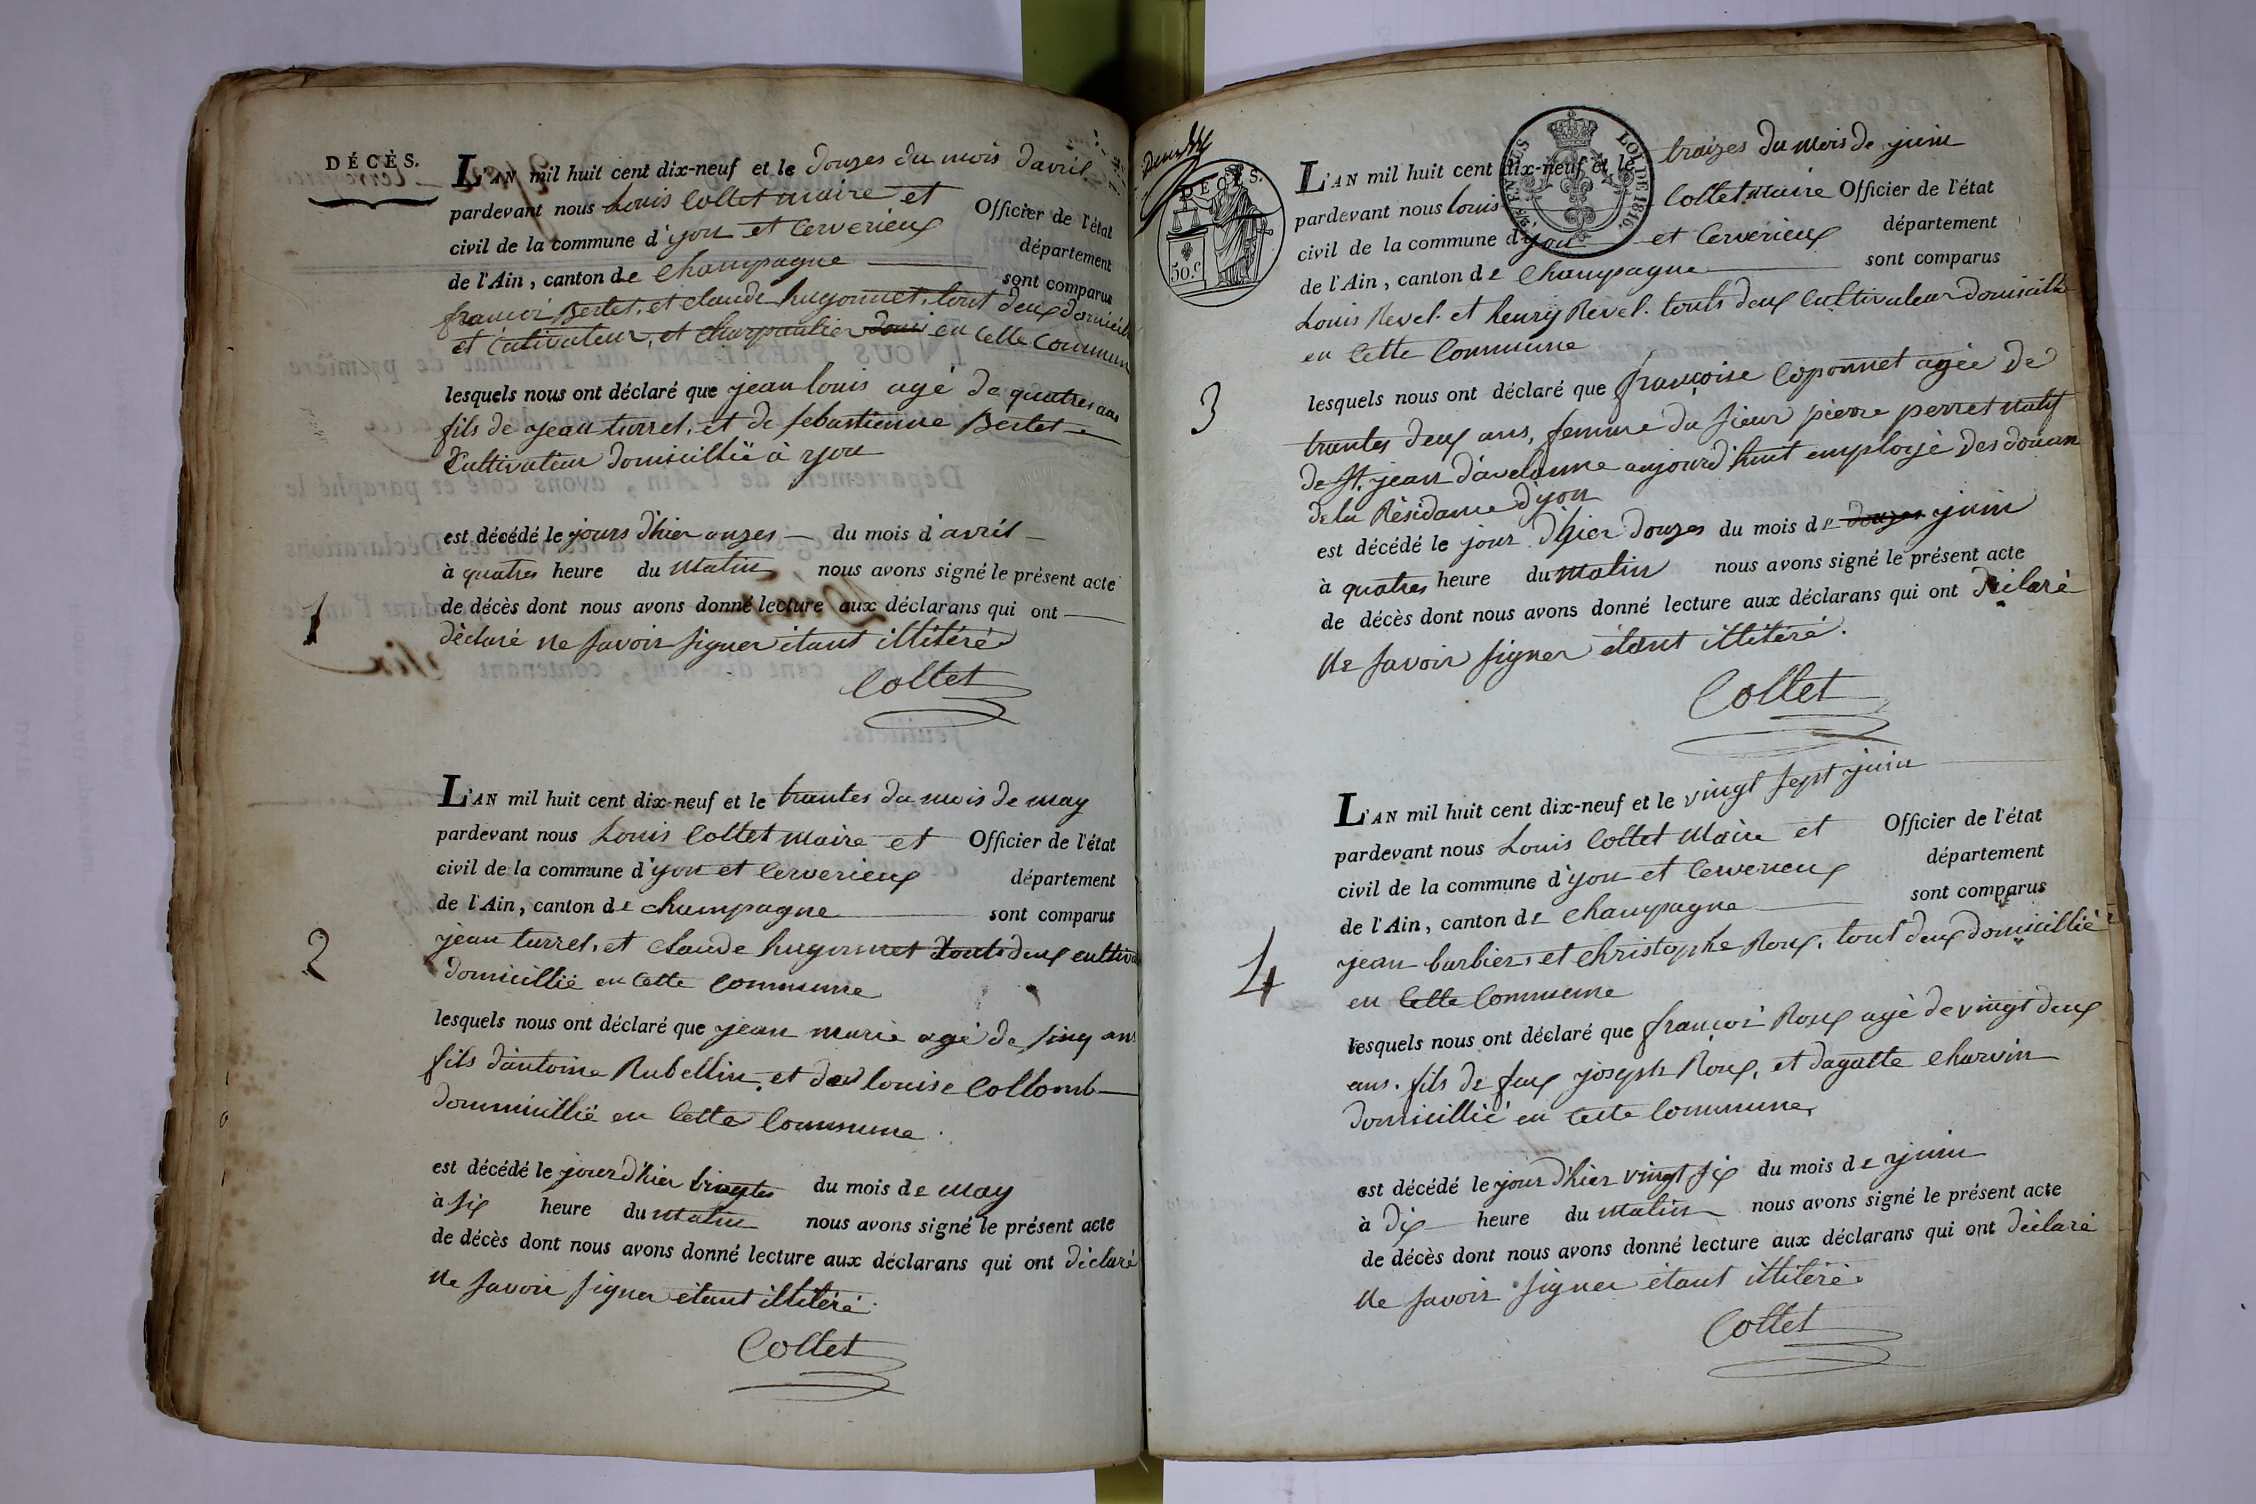 DÉCÈS.
L'AN mil huit cent dix-neuf et le douzes du mois davril
pardevant nous Louis Collet maire et Officier de l'état
civil de la commune d'yon et Cerverieux département
de l'Ain, canton de Champagne sont comparus
françoi Berlet, et claude hugonnet, tout deux domicilié
et Cultivateur, et charpantier domi en Cette Commun
lesquels nous ont déclaré que jean louis agé de quatres ans
fils de jean turrel, et de sebastienne Berlet
Cultivateur domicillié à yon
est décédé le jours d'hier onzes du mois d'avril
à quatres heure du matin nous avons signé le présent acte
de décès dont nous avons donné lecture aux déclarans qui ont
1
déclaré ne savoir signer étant illitéré
Collet
L'AN mil huit cent dix-neuf et le trantes du mois de may
pardevant nous Louis Collet maire et Officier de l'état
civil de la commune d'yon et Cerverieux département
de l'Ain, canton de champagne sont comparus
2
jean turrel, et claude hugonnet touts deux cultiva
domicillié en Cette Commune
lesquels nous ont déclaré que jean marie agé de sinq ans
fils d'antoine Rubellin, et de louise Collomb
dommicillié en Cette Commune
est décédé le jour d'hier du mois de may
à six heure du matin nous avons signé le présent acte
de décès dont nous avons donné lecture aux déclarans qui ont déclaré
ne savoir signer étant illitéré
Collet
DÉCÈS.
50.c
LOI DE 1816.
L'AN mil huit cent dix-neuf et le traizes du mois de juin
pardevant nous louis Collet maire Officier de l'état
civil de la commune d'yon et Cerverieux département
de l'Ain, canton de Champagne sont comparus
Louis Revel. et henry Revel. touts deux Cultivateur domicillié
en Cette Commune
3
lesquels nous ont déclaré que françoise Coponnet agée de
trantes deux ans, femme du sieur pierre perret natif
de St. jean d'avelanne aujourd'huit employé des douan
de la Résidance d'yon
est décédé le jour d'hier douzes du mois de douzes juin
à quatres heure du matin nous avons signé le présent acte
de décès dont nous avons donné lecture aux déclarans qui ont déclaré
ne savoir signer étant illitéré.
Collet
L'AN mil huit cent dix-neuf et le vingt sept juin
pardevant nous Louis Collet Maire et Officier de l'état
civil de la commune d'yon et Cerverieux département
de l'Ain, canton de Champagne sont comparus
jean barbier, et christophe Roux, tout deux domicillié
4
en Cette Commune
lesquels nous ont déclaré que françoi Roux agé de vingt deux
ans. fils de feux joseph Roux, et dagatte charvin
domicillié en cette Commune
est décédé le jour d'hier vingt six du mois de juin
à dix heure du matin nous avons signé le présent acte
de décès dont nous avons donné lecture aux déclarans qui ont déclaré
ne savoir signer étant illitéré.
Collet